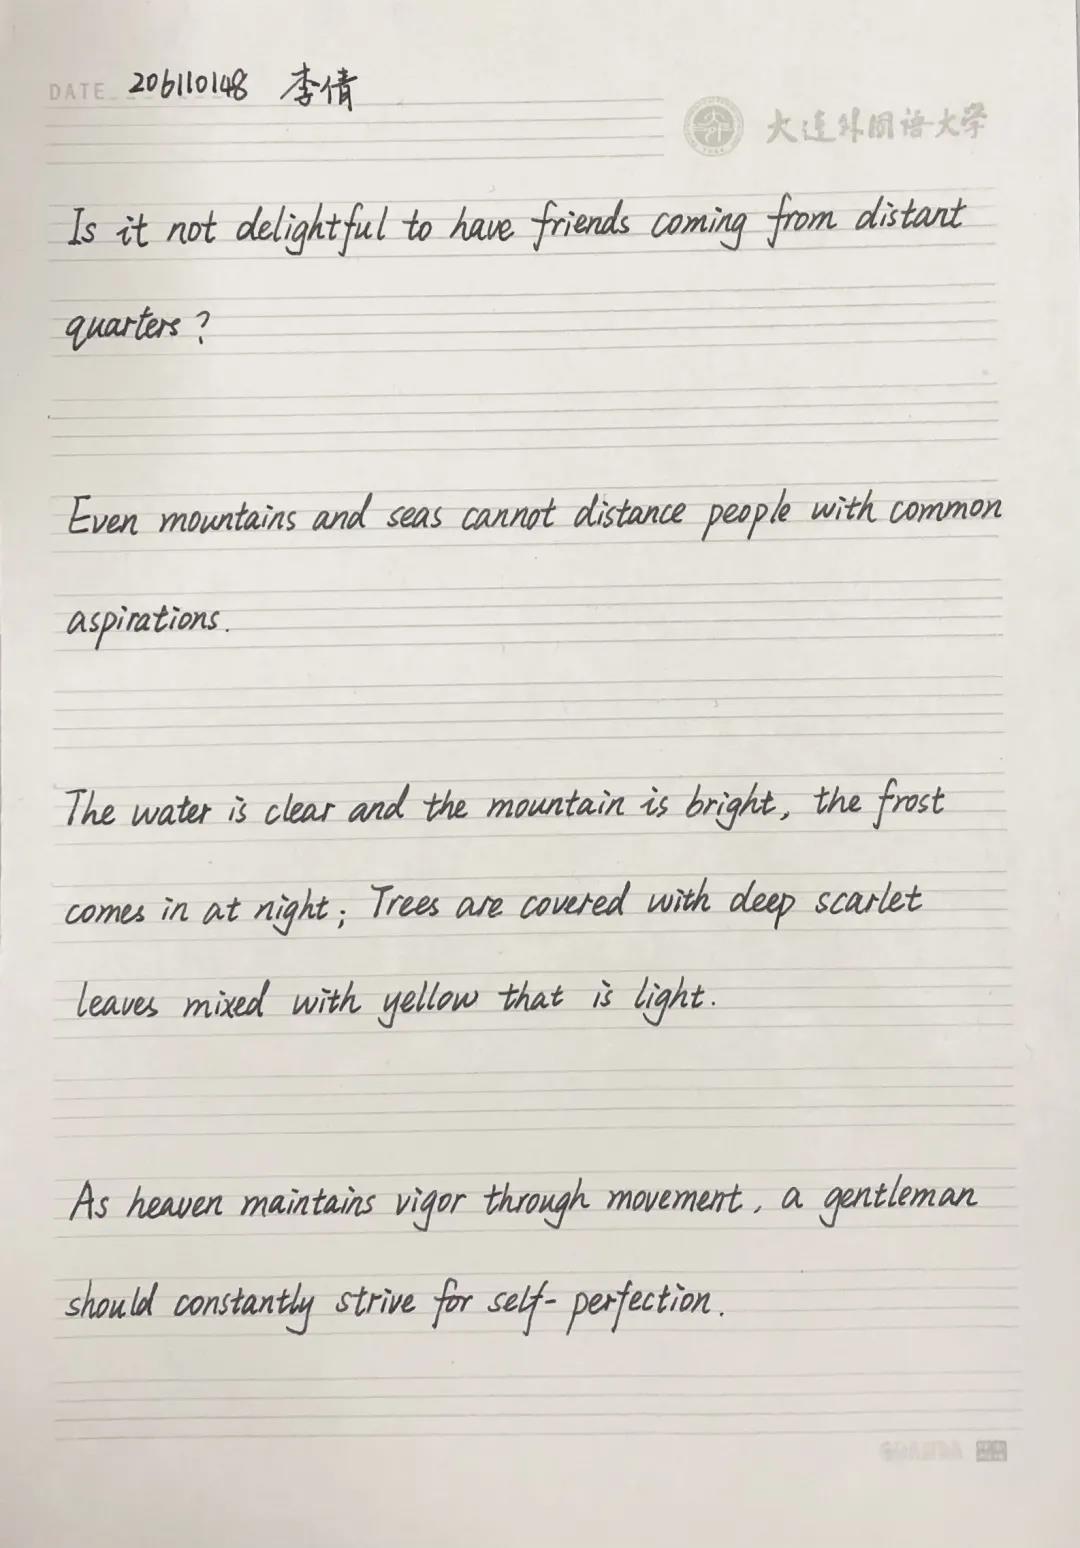 DATE 206110148 李倩
大连外国语大学
Is it not delightful to have friends coming from distant
quarters?
Even mountains and seas cannot distance people with common
aspirations.
The water is clear and the mountain is bright, the frost
comes in at night; Trees are covered with deep scarlet
leaves mixed with yellow that is light.
As heaven maintains vigor through movement, a gentleman
should constantly strive for self-perfection.